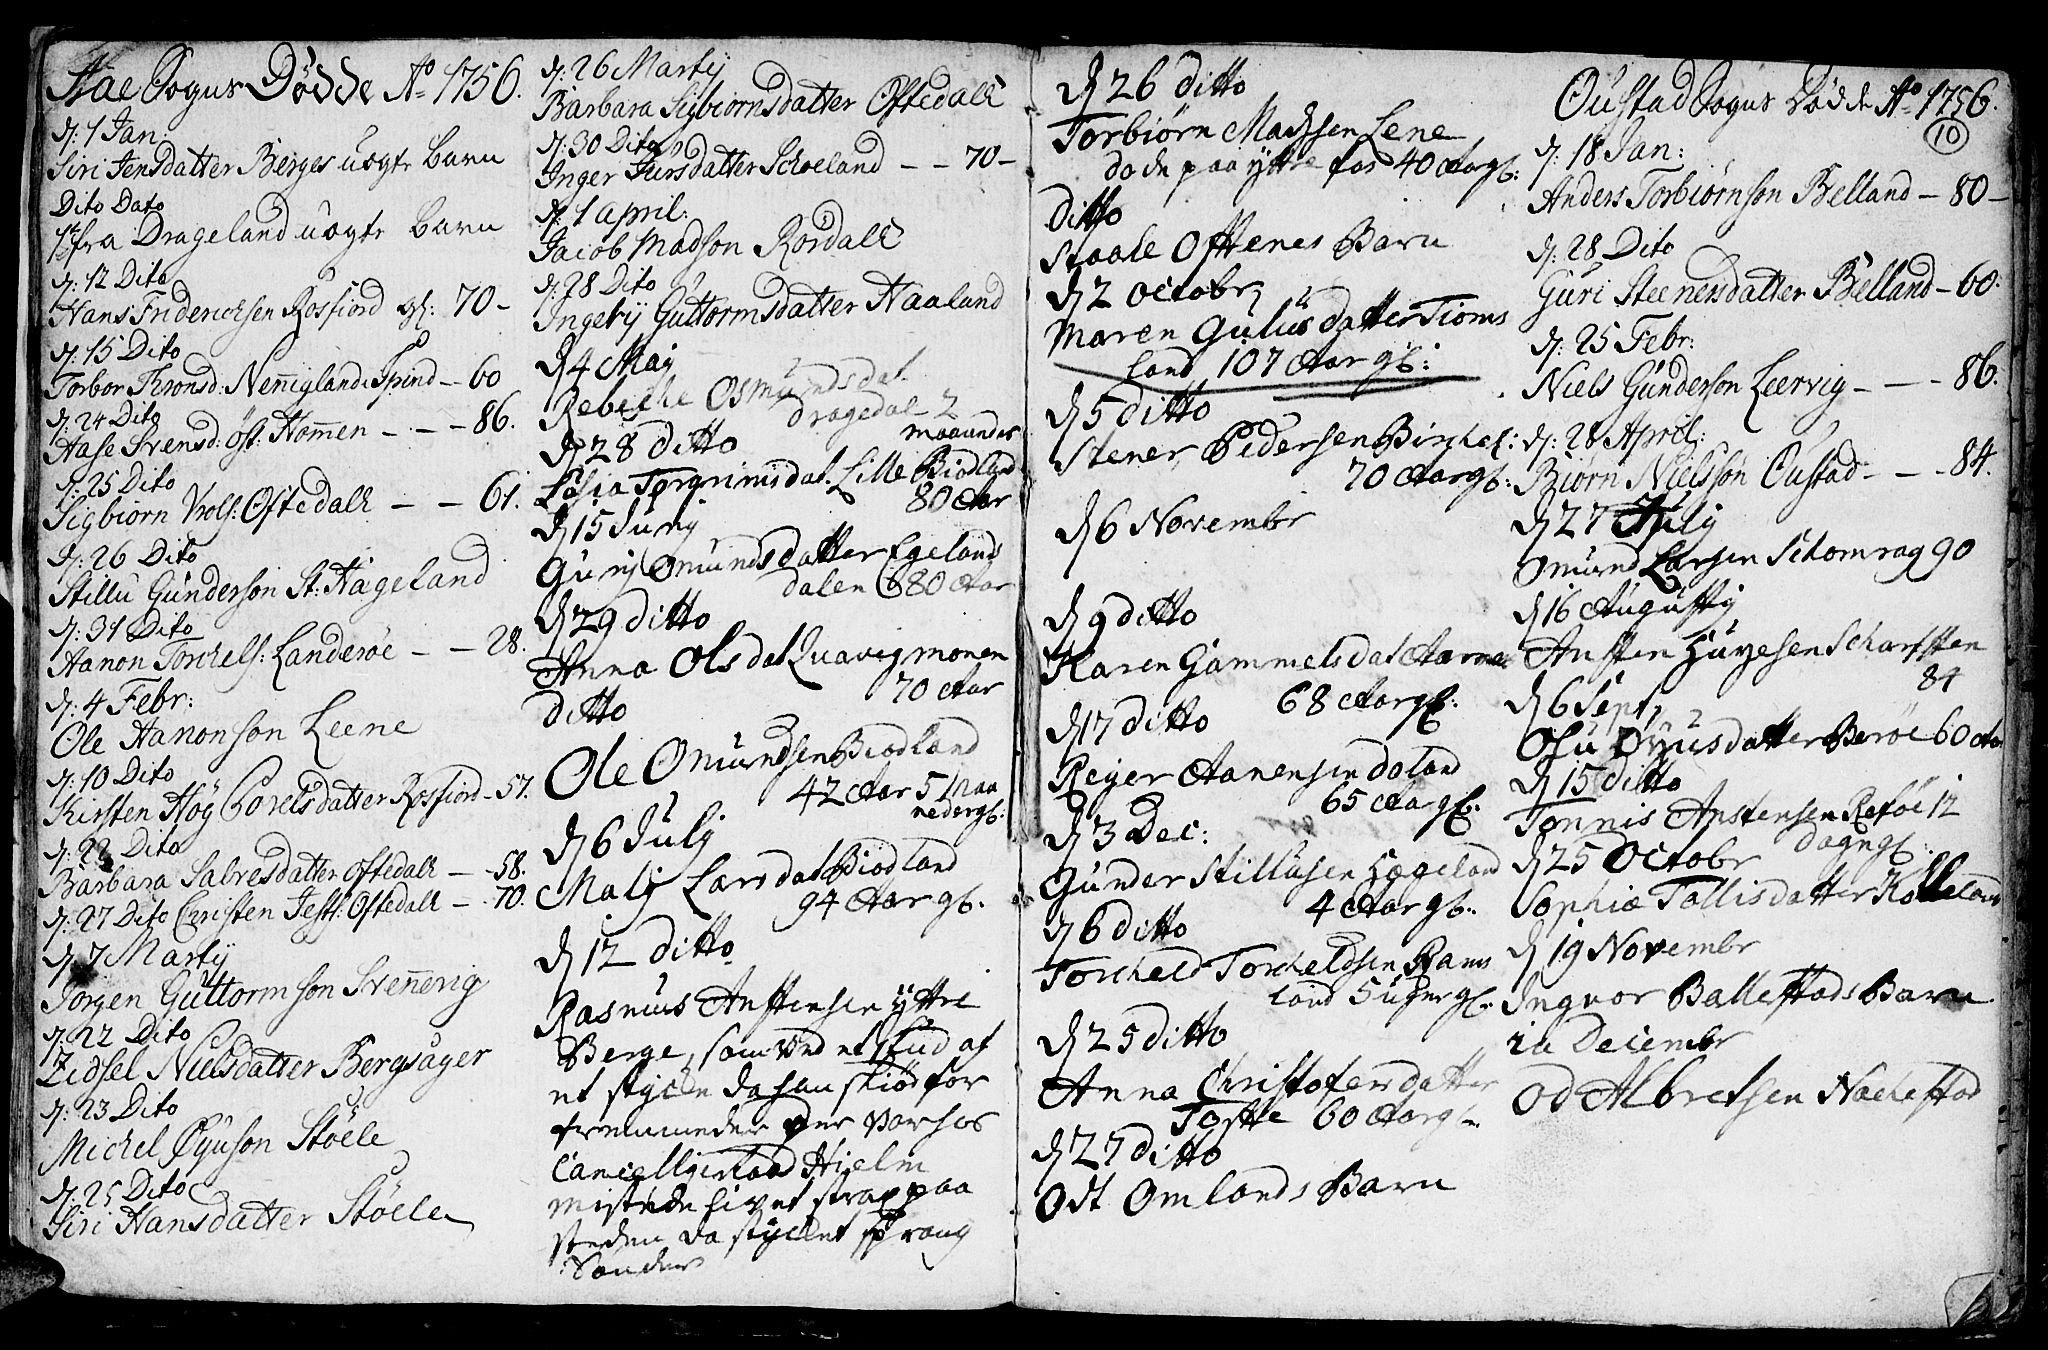 Aae Sogns Dödde Ao 1756.
d: 1 Jan:
Siri Jensdatter Berges uægte barn
Dito Dato
fra Drageland uægte barn
d: 12 Dito
Hans Friderichsen Rosfiord gl: 70 -
d: 15 Dito
Torbor Thronsd: Nennigland i Spind - 60
d: 24 Dito
Aase Svensd: Öst: Homen - - - 86.
d: 25 Dito
Sigbiorn Oftedall - - 61.
d: 26 Dito
Stillu Günderson St: Hageland
d: 31 Dito
Aanon Torchels: Landeröe - - 28.
d: 4 Febr:
Ole Aanonson Leene
d: 10 Dito
Kirsten Höy Corelsdatter Rosfiord - 57.
d: 22 Dito
Barbara Salvesdatter Oftedall - 58.
d: 27 Dito Christen Oftedall - 70.
d: 7 Martij
Jörgen Güttormson Svennevig
d: 22 Dito
Zidsel Nielsdatter Bergsager
d: 23 Dito
Michel Öyuson Stöele
d: 25 Dito
Siri Hansdatter Stöele
d: 26 Martij
Barbara Sigbiornsdatter Oftedall
d: 30 Dito
Inger Jursdatter Schoeland - - 70 -
d: 1 april:
Jacob Madson Rosdall
d: 28 Dito
Ingebÿ Güttormsdatter Naaland
d 4 Maij
Rebeche Osmundsdat.
dragedal 2
maaneder
d 28 ditto
Torgrimsdat. Lille Biodland
80 Aar
d 15 Junij
Gurij Omundsdatter Egelands
dalen 80 Aar
d 29 ditto
Anna Olsdat Quavigmonen
70 Aar
ditto
Ole Omundsen Biodland
42 Aar 5 Maa
nedergl:
d 6 Julj
Malj Larsdat Biodland
94 Aar gl.
d 12 ditto
Rasmus Anstensen Ÿttre
Berge, som ved et skud af
et stycke da han skiöd for
fremmede der var hos
Cancellyeraad Hielm
mistede livet strax paa
steden da stycket sprang
Sonder
d 26 ditto
Torbiörn Madsen Lene
döde paa yttre fos 40 Aargl:
ditto
Staale Oftenes Barn
d 2 octobr
Maren Gulüsdatter Tioms
land 107 Aar gl:
d 5 ditto
Stener Pedersen Birchel:
70 Aargl:
d 6 Novembr
d 9 ditto
Karen Gammelsdat Aarnes
68 Aargl:
d 17 ditto
Reyer Aanensen daland
65 Aargl:
d 3 Dec:
Gunder Stillusen Hægeland
4 Aar gl:
d 6 ditto
Torcheld Torcheldsen Rams
land 5 uger gl:
d 25 ditto
Anna Christofersdatter
Töfte 60 Aargl
d 27 ditto
Odt Omlands Barn
Oustad Sogns Dödde Ao 1756.
10
d: 18 Jan:
Anders Torbiörnson Belland - 80 -
d: 28 Dito
Guri Steenersdatter Belland - 60:
d: 25 Febr:
Niels Günderson Leervig - - - 86.
d: 28 April:
Biörn Nielsson Oustad - - - 84.
d 27 July
Omund Larsen Schomrag 90
d 16 Augustij
Ansten Huyesen Scharsten
84
d 6 Sept
Osu Öyusdatter Beröe 60 Aar
d 15 ditto
Tönnis Anstensen Reföe 12
dagngl:
d 25 Octobr
Sophia Tollisdatter Kolleland
d 19 Novembr
Ingvor Ballestads Barn
in Decembr
Od Albretsen Nachestad